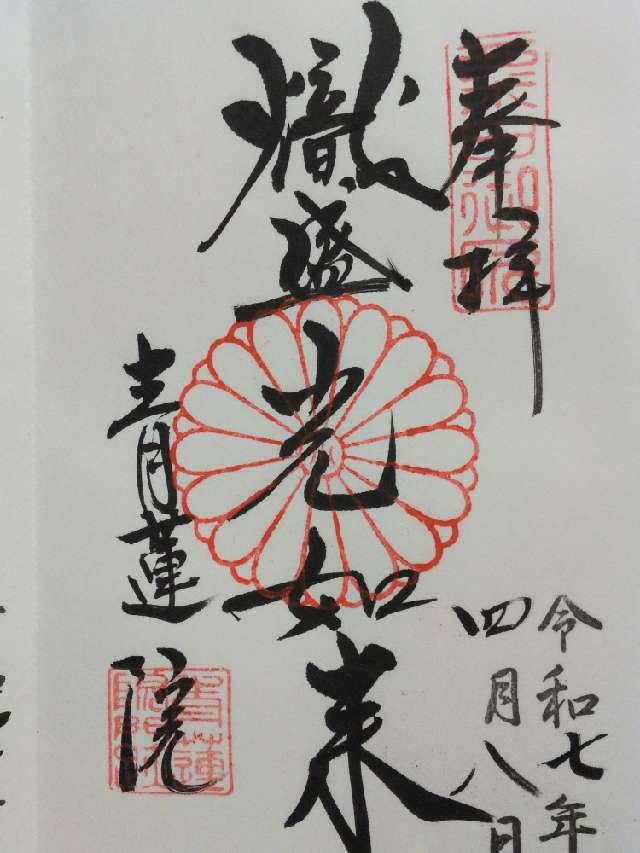 奉拝
熾盛光如来
青蓮院
令和七年
四月八日